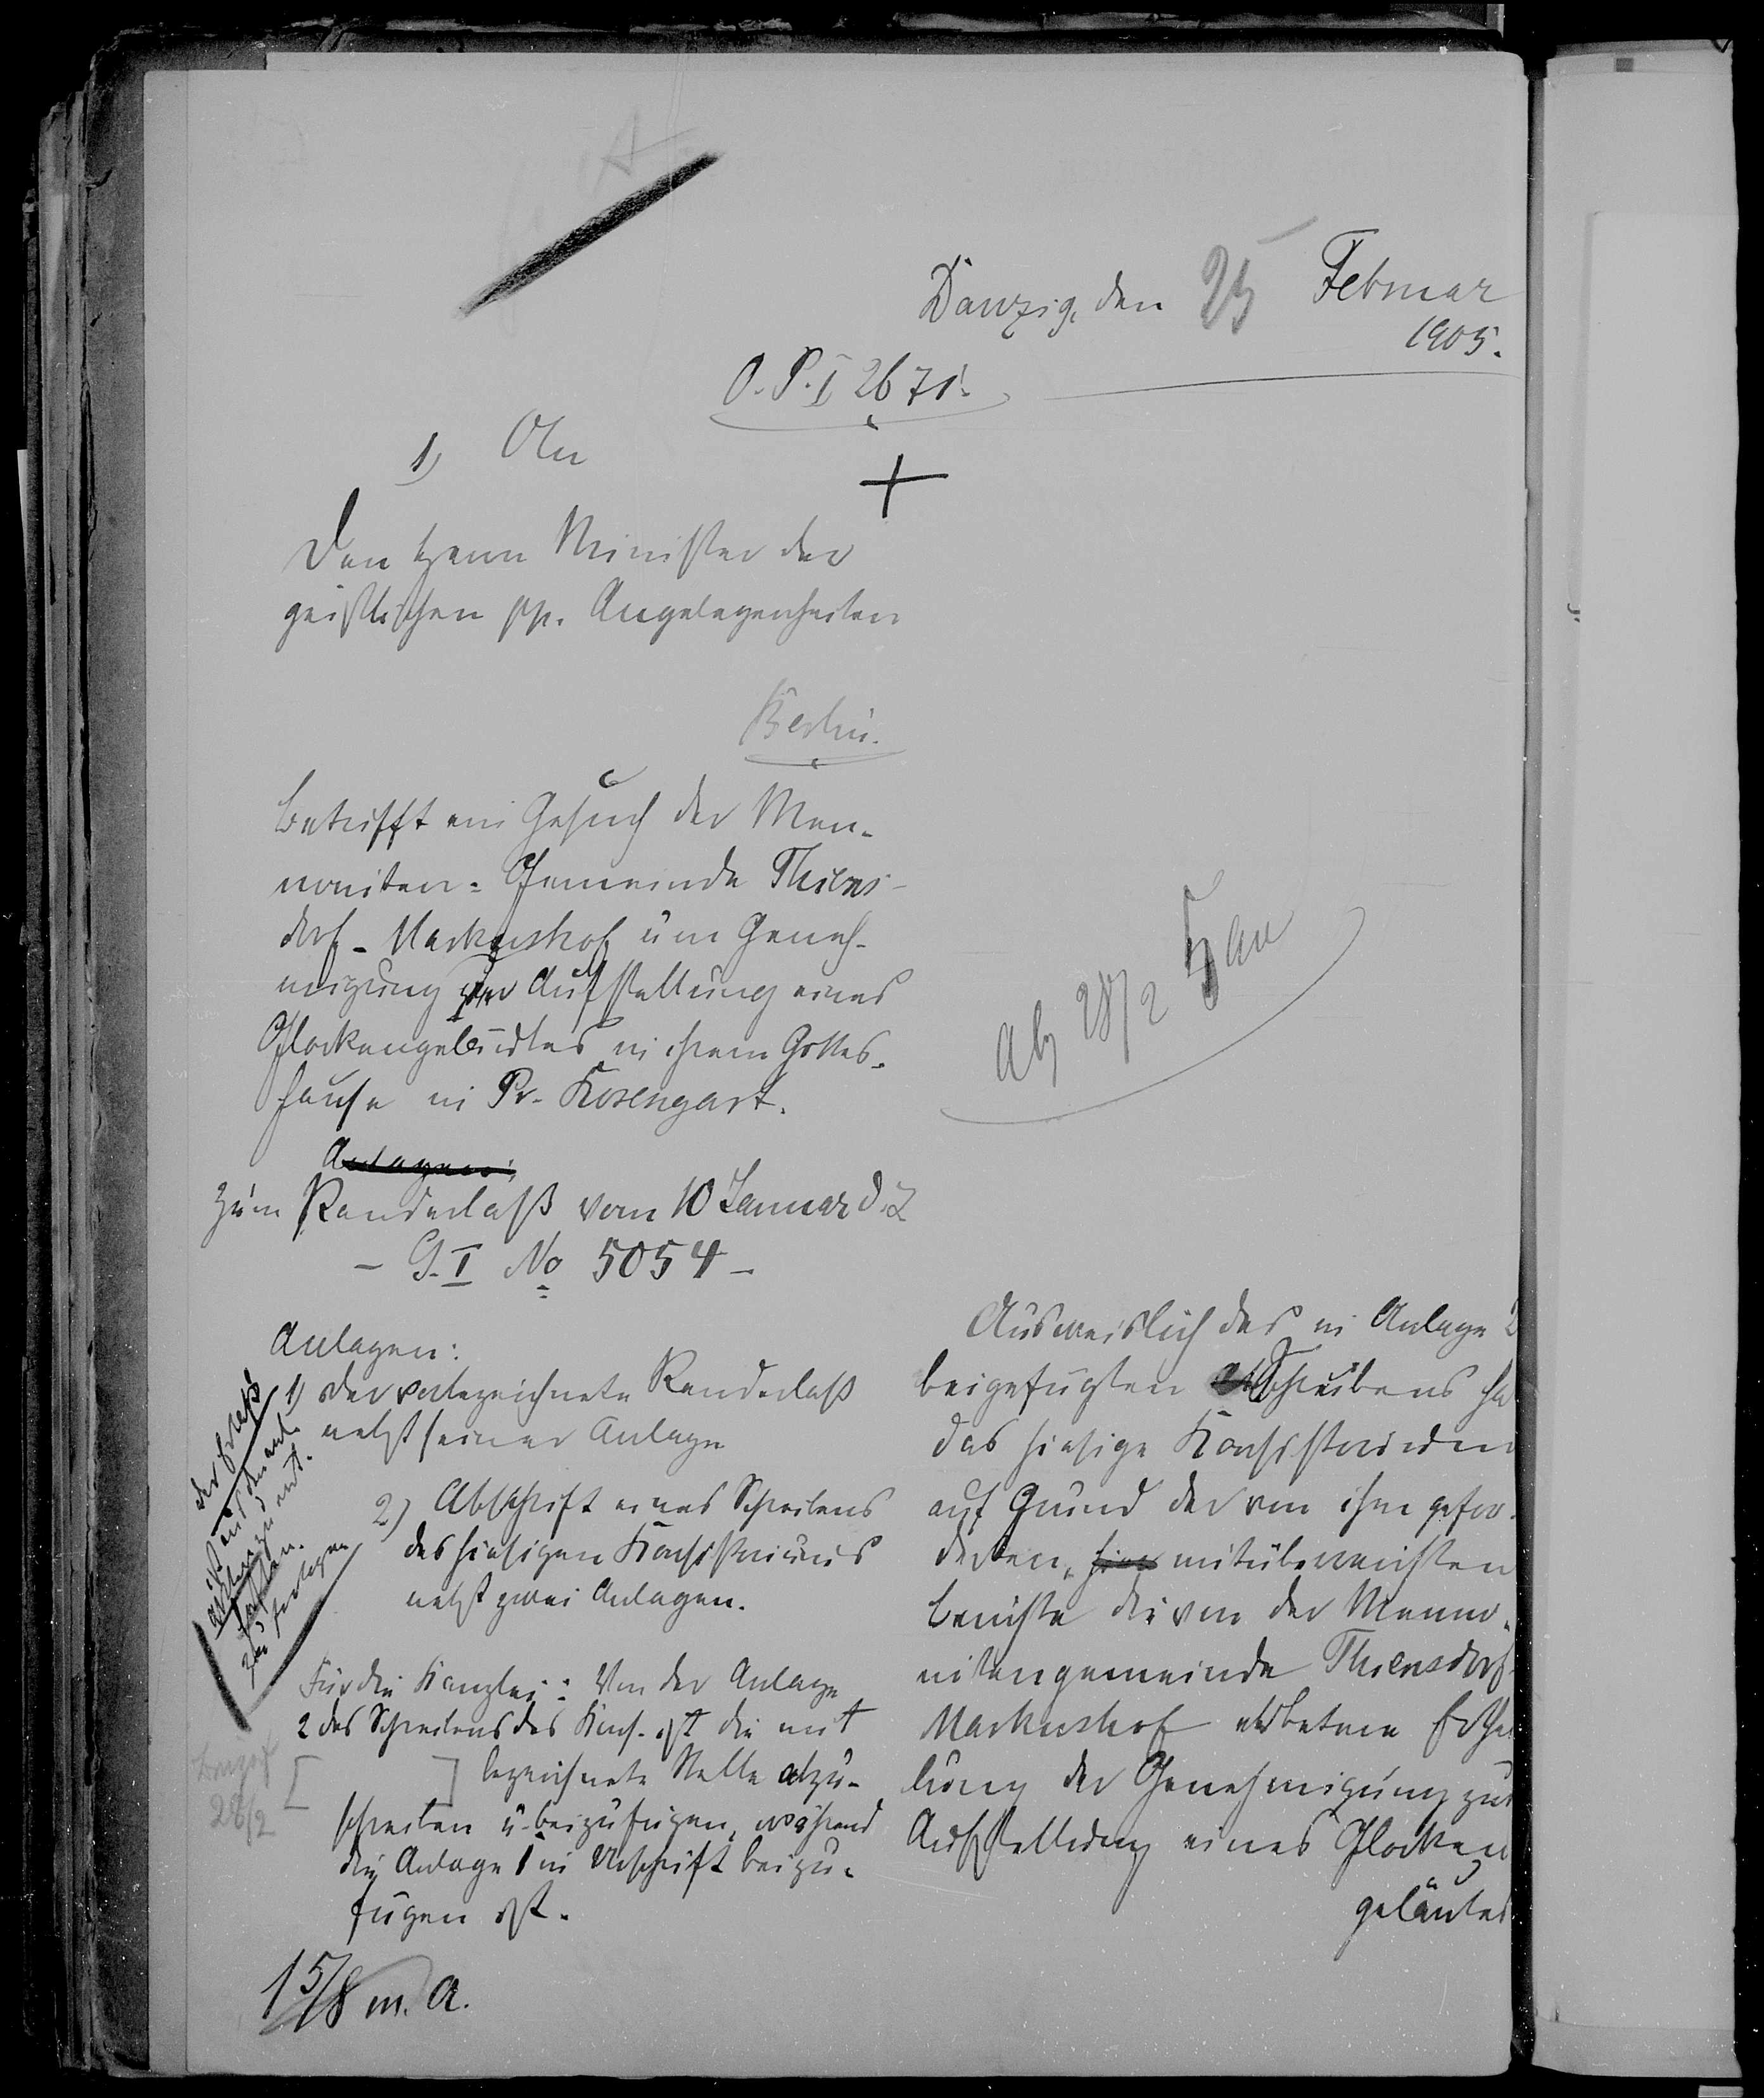 Danzig, den 25 Februar
1905.
O. P. I 2671.
1) An
Den Herrn Minister der
geistlichen pp. Angelegenheiten
Berlin.
Betrifft ein Gesuch der Men-
noniten-Gemeinde Thiens-
dorf-Markushof um Geneh-
migung zur Aufstellung eines
Glockengeläutes in ihrem Gottes-
hause in Pr. Rosengart.
Anlagen:
Zum Randerlaß vom 10 Januar d. J.
- G. I No 5054 -
Anlagen:
1) der vorbezeichnete Randerlaß
nebst seiner Anlage
2) Abschrift eines Schreibens
des hiesigen Konsistoriums
nebst zwei Anlagen.
der Erlaß
ist
zu
Für die Kanzlei: Von der Anlage
2 des Schreibens des Kons. ist die mit
[ ] bezeichnete Stelle abzu-
schreiben u. beizufügen, während
die Anlage 1 in Urschrift beizu-
fügen ist.
28/2
15/8 m. A.
ab 28/2
Ausweislich des in Anlage 2
beigefügten Schreibens ha
das hiesige Konsistorium
auf Grund der von ihm gefor-
derten, hier mitüberreichten
Berichte die von der Menno-
nitengemeinde Thiensdorf-
Markushof erbetene Erthei
lung der Genehmigung zur
Aufstellung eines Glocken
geläutes